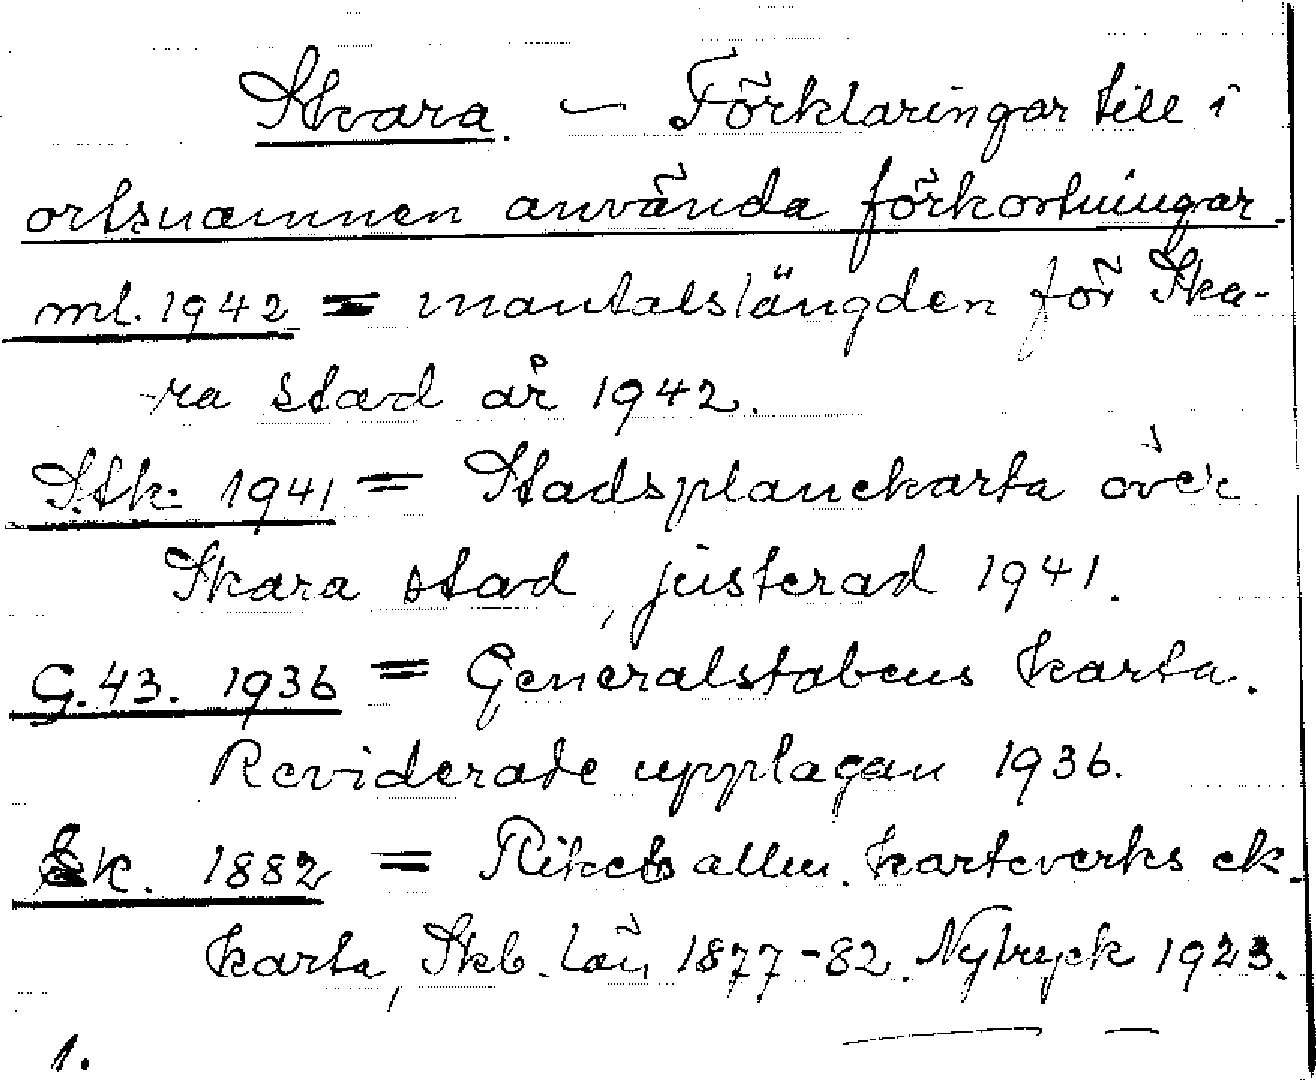 Skara. — Förklaringar till i
ortsnamnen använda förkortningar.
ml. 1942 = mantalslängden för Ska-
ra stad år 1942.
S.tk. 1941 = Stadsplanekarta över
Skara stad, justerad 1941.
G. 43. 1936 = Generalstabens karta.
Reviderade upplagan 1936.
Ek. 1882 = Rikets allm. kartverks ek.
karta, Skb. län, 1877-82. Nytryck 1923.
1.